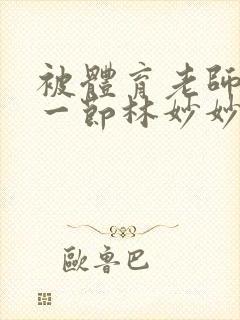 被體育老師
一節林妙妙
歐魯巴